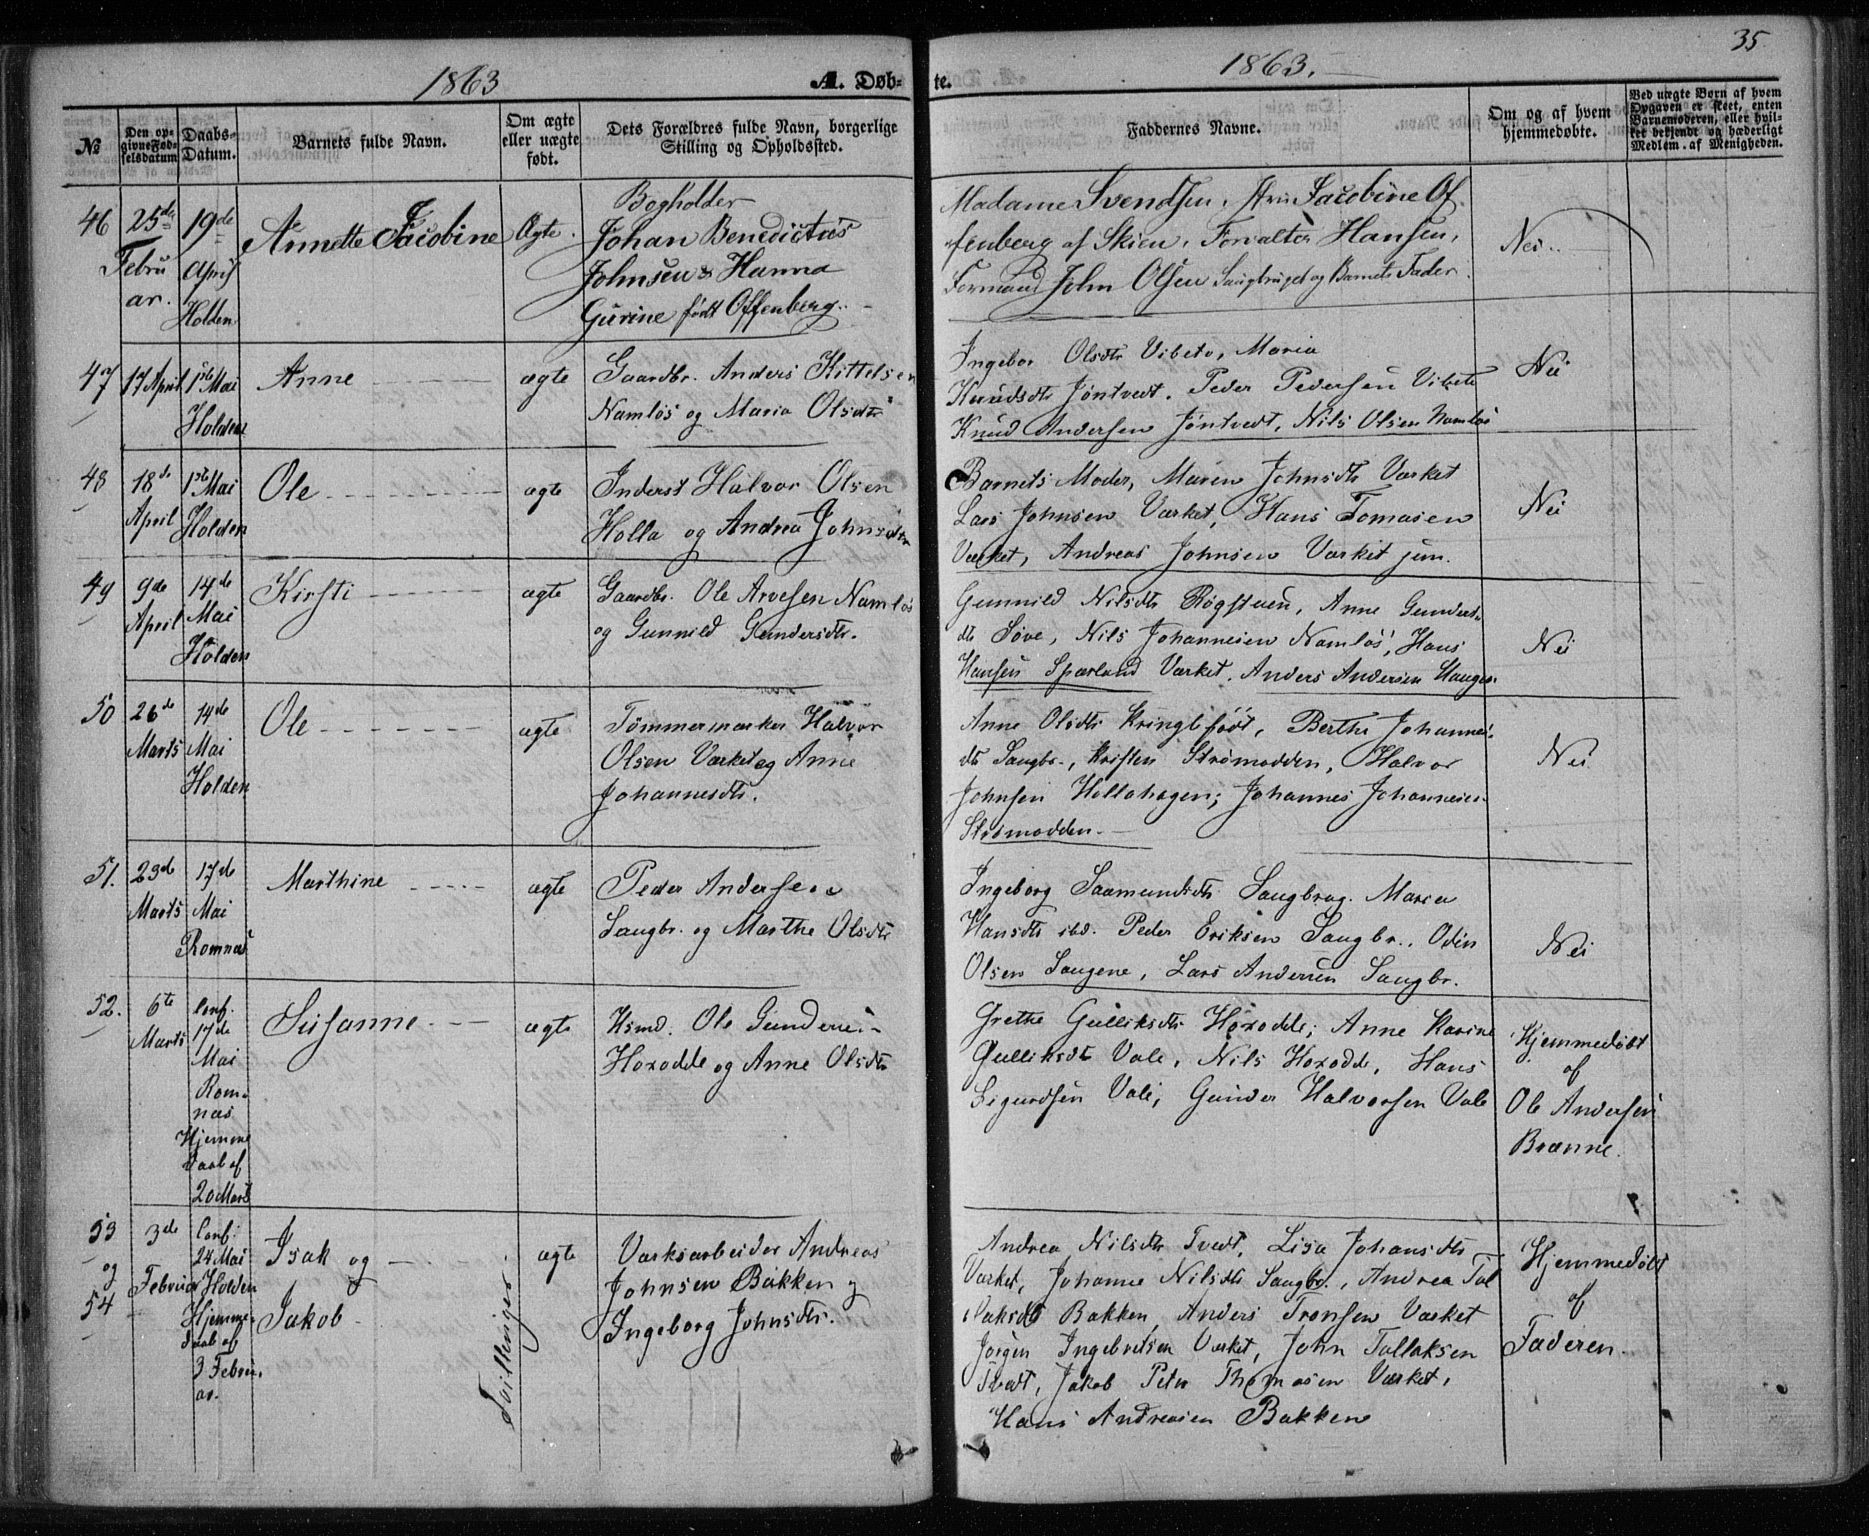 1863
A. Døb-
№
Den op-
givne Fød-
selsdatum
Daabs-
Datum.
Barnets fulde Navn.
Om ægte
eller uægte
født.
Dets Forældres fulde Navn, borgerlige
Stilling og Opholdssted.
46
25de
Febru
ar.
19de
April
Holden
Annette Jacobine
Ægte.
Bogholder
Johan Benedictus
Johnsen & Hanna
Gurine født Offenberg.
47
17 April
1ste Mai
Holden
Anne
ægte
Gaardbr. Anders Kittelsen
Namløs og Maria Olsdtr
48
18de
April
1ste Mai
Holden
Ole
ægte
Inderst Halvor Olsen
Holla og Andrea Johnsdtr
49
9de
April
14de
Mai
Holden
Kirsti
ægte
Gaardbr. Ole Arvesen Namløs
og Gunnild Gundersdtr.
50
26de
Marts
14de
Mai
Holden
Ole
ægte
Tømmermærker Halvor
Olsen Værket og Anne
Johannesdtr.
51.
29de
Marts
17de
Mai
Romnæs
Marthine
ægte
Peder Andersen
Saugbr. og Marthe Olsdtr
52.
6te
Marts
Conf.
17de
Mai
Rom-
næs
Hjemme
daab af
20 Marts
Susanne
ægte
Hsmd. Ole Gundersen
Hoxodde og Anne Olsdtr
53
og
54
3de
Februar
Conf:
24 Mai
Holden
Hjemme-
daab af
3 Febru-
ar.
Isak og
Jakob
Tvillinger
ægte
Værksarbeider Andreas
Johnsen Bakken og
Ingeborg Johnsdtr.
35
1863.
te.
Faddernes Navne.
Om og af hvem
hjemmedøbte.
Ved uægte Børn af hvem
Opgaven er skeet, enten
Barnemoderen, eller hvil-
ket bekjendt og hæderligt
Medlem af Menigheden.
Madame Svendsen, Jacobine Of
fenberg af Skien, Forvalter Hansen,
Formand John Olsen Saugbruget og Barnets Fader.
Nei.
Ingebor Olsdtr Vibeto, Maria
Knudsdtr Jøntvedt. Peder Pedersen Vibeto
Knud Andersen Jøntvedt, Nils Olsen Namløs
Nei
Barnets Moder, Maren Johnsdtr Værket
Lars Johnsen Værket, Hans Tomasen
Værket, Andreas Johnsen Værket jun.
Nei
Gunnild Nilsdtr Røgstuen, Anne Gunders
dtr Søve, Nils Johannesen Namløs, Hans
Hansen Spærland Værket. Anders Andersen Haugen
Nei
Anne Olsdtr Kringlefodt, Berthe Johannes-
dtr Saugbr., Kristen Strømodden, Halvor
Johnsen Hollahagen, Johannes Johannesen
Strømodden.
Nei
Ingeborg Saamundsdtr Saugbrug. Maren
Hansdtr ibd. Peder Eriksen Saugbr., Odin
Olsen Saugene, Lars Andersen Saugbr.
Nei
Grethe Gulliksdtr Hoxodde, Anne Karine
Gulliksdtr Vale, Nils Hoxodde, Hans
Sigurdsen Vale, Gunder Halvorsen Vale
Hjemmedøbt
af
Ole Andersen
Brænne.
Andrea Nilsdtr Tvedt, Lisa Johansdtr
Værket, Johanne Nilsdtr Saugbr., Andrea Tol
laksdtr Bakken, Anders Tronsen Værket
Jørgen Ingebretsen Værket, John Tollaksen
Tvedt, Jakob Peter Thomasen Værket,
Hans Andreasen Bakken
Hjemmedøbt
af
Faderen.